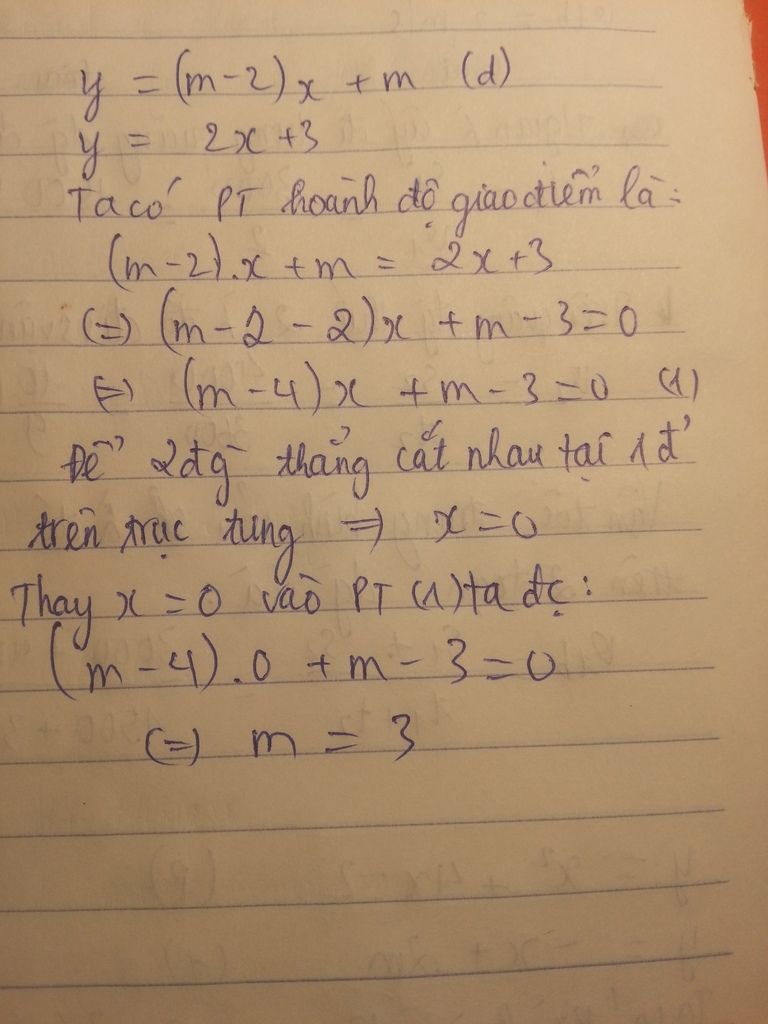 y = (m-2)x + m (d)
y = 2x+3
Ta có PT hoành độ giao điểm là:
(m-2).x + m = 2x+3
(=) (m-2-2)x + m-3=0
(=) (m-4)x + m-3=0 (1)
Để 2 đg thẳng cắt nhau tại 1 đ'
trên trục tung => x=0
Thay x=0 vào PT (1) ta đc:
(m-4).0 + m-3=0
(=) m = 3